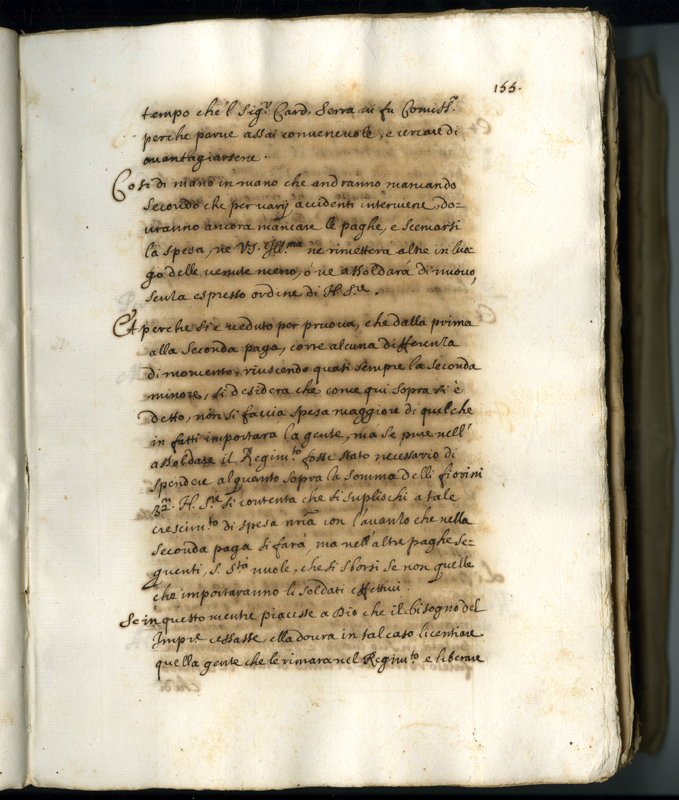 155.
tempo che'l Sig.r Card. Serra vi fu Comiss.
perche parve assai convenevole, e cercare di
avantagiarsene.
Così di mano in mano che andranno mancando
secondo che per varÿ accidenti interviene, do-
vranno ancora mancare le paghe, e scemarsi
la spesa, ne VS. Ill.ma ne rimetterà altre in luo-
go delle venute meno, ò ne assoldarà di nuovo,
senza espresso ordine di N. S.re.
Et perche si è veduto per pruova, che dalla prima
alla seconda paga, corre alcuna differenza
di momento, riuscendo quasi sempre la seconda
minore, si desidera che come qui sopra si è
detto, non si faccia spesa maggiore di quel che
in fatti importarà la gente, ma se pure nell'
assoldare il Regim.to fosse stato necessario di
spendere alquanto sopra la somma delli fiorini
32.m N. S.re si contenta che si suplischi a tale
crescim.to di spesa con l'avanzo che nella
seconda paga si farà, ma nell'altre paghe se-
guenti, S. S.tà vuole, che si sborsi se non quelle
che importaranno li soldati effettivi.
Se in questo mentre piacesse a Dio che il bisogno del
Impre cessasse, ella dovrà in tal caso licentiare
quella gente che le rimarà nel Regim.to e liberare